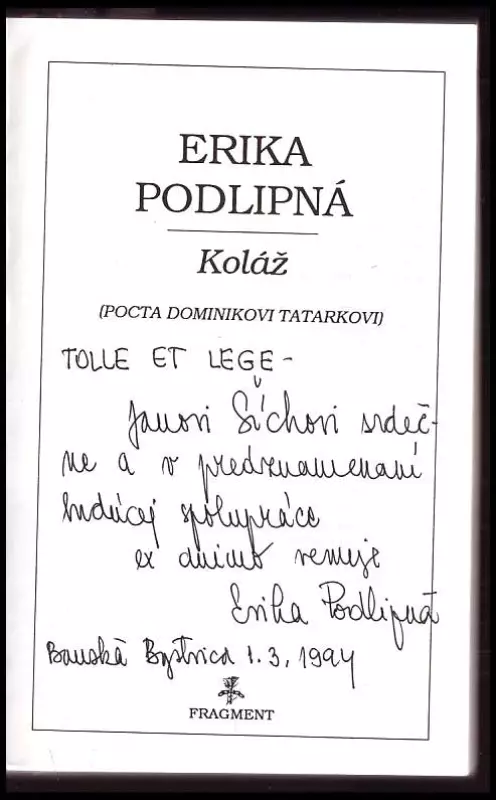 ERIKA
PODLIPNÁ
Koláž
(POCTA DOMINIKOVI TATARKOVI)
TOLLE ET LEGE -
Janovi Šíchovi srdeč-
ne a v predznamenaní
budúcej spolupráce
ex animo venuje
Erika Podlipná
Banská Bystrica 1.3.1994
FRAGMENT